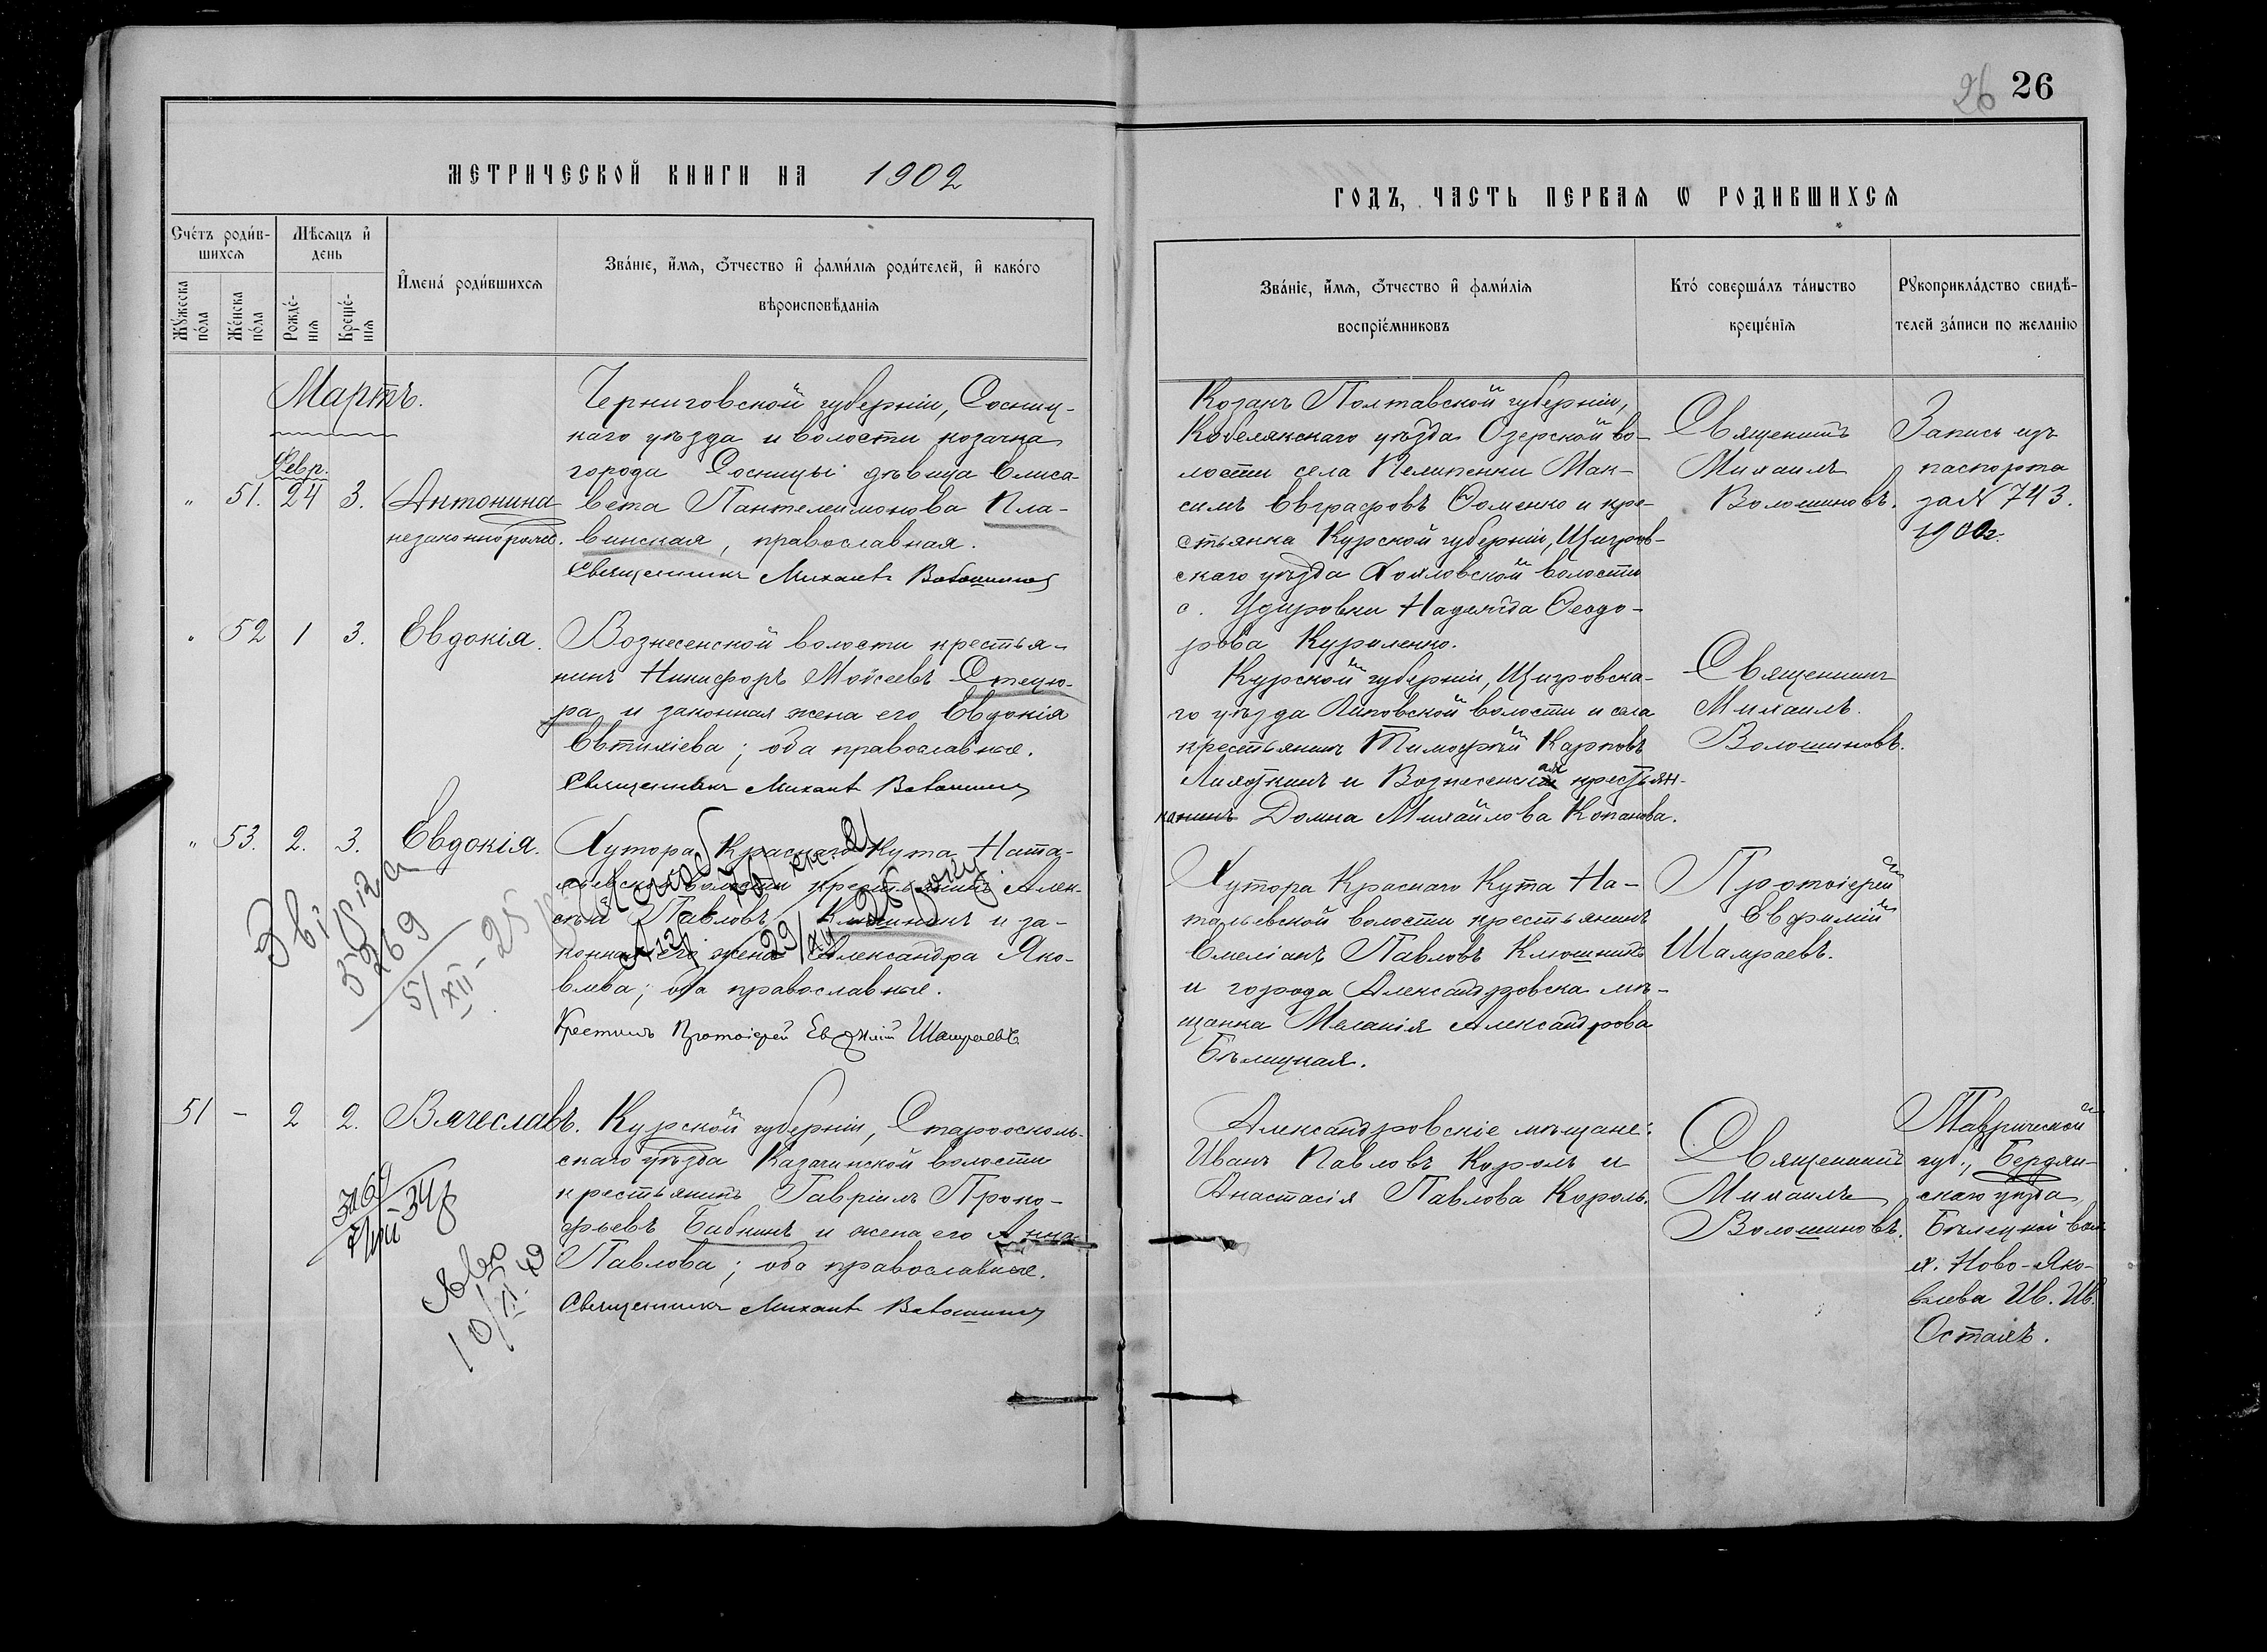 26 26
МЕТРИЧЕСКОЙ КНИГИ НА 1902
ГОДЪ, ЧАСТЬ ПЕРВАЯ Ѡ РОДИВШИХСЯ
Сче́тъ роди́в-
шихсѧ
Мѣсѧцъ и҆
де́нь
Мꙋ́жеска
по́ла
Же́нска
по́ла
Рожде́-
нїѧ
Креще́-
нїѧ
И҆мена̀ роди́вшихсѧ
Зва́нїе, и҆́мѧ, ѻ҆́тчество и҆ фамі́лїѧ роди́телей, и҆ како́гѡ
вѣроисповѣ́данїѧ
Зва́нїе, и҆́мѧ, ѻ҆́тчество и҆ фамі́лїѧ
воспрїе́мниковъ
Кто̀ соверша́лъ та́инство
креще́нїѧ
Рꙋкоприкла́дство свидѣ́-
телей за́писи по жела́нїю
Мартъ.
Февр.
" 51. 24 3. Антонина
незаконнорожд.
Черниговской губерніи, Сосниц-
каго уѣзда и волости козачка
города Сосницы дѣвица Елиса-
вета Пантелеимонова Пла-
винская, православная.
Священникъ Михаилъ Волошиновъ
Козакъ Полтавской губерніи,
Кобелякскаго уѣзда Озерской во-
лости села Пелипенки Мак-
симъ Евграфовъ Фоменко и кре-
стьянка Курской губерніи, Щигров-
скаго уѣзда волости
с. Надежда Ѳеодо-
рова Куроленко.
Священникъ
Михаилъ
Волошиновъ.
Запись изъ
паспорта
за № 743.
1900г.
" 52 1 3. Евдокія.
Вознесенской волости крестья-
нинъ Никифоръ Мойсеевъ Стецю-
ра и законная жена его Евдокія
Евтихіева; оба православные.
Священникъ Михаилъ Волошиновъ
Курской губерніи, Щигровска-
го уѣзда Липовской волости и села
крестьянинъ Тимофей Карповъ
и Вознесенская крестьян-
Домна Михайлова Копанова.
Священникъ
Михаилъ
Волошиновъ.
" 53. 2. 3. Евдокія.
Хутора Краснаго Кута Ната-
льевской волости крестьянинъ Алек-
сѣй Павловъ Клюшникъ и за-
конная его жена Александра Яко-
влева; оба православные.
Крестилъ Протоіерей Евфимій Шамраевъ
Хутора Краснаго Кута На-
тальевской волости крестьянинъ
Емеліанъ Павловъ Клюшникъ
и города Александровска мѣ-
щанка Меланія Александрова
Бѣлицкая.
Протоіерей
Евфимій
Шамраевъ.
5269
5/XII-25
29/XII 25 року
51 - 2 2. Вячеславъ.
Курской губерніи, Староосколь-
скаго уѣзда Казачинской волости
крестьянинъ Гавріилъ Проко-
фьевъ Бабкинъ и жена его Анна
Павлова; оба православные.
Священникъ Михаилъ Волошиновъ
Александровскіе мѣщане:
Иванъ Павловъ Король и
Анастасія Павлова Король.
Священникъ
Михаилъ
Волошиновъ.
Таврической
губ., Бердян-
скаго уѣзда
х. Ново-Яко-
влева Ив. Ив.
Остаяхъ.
10/XI-49